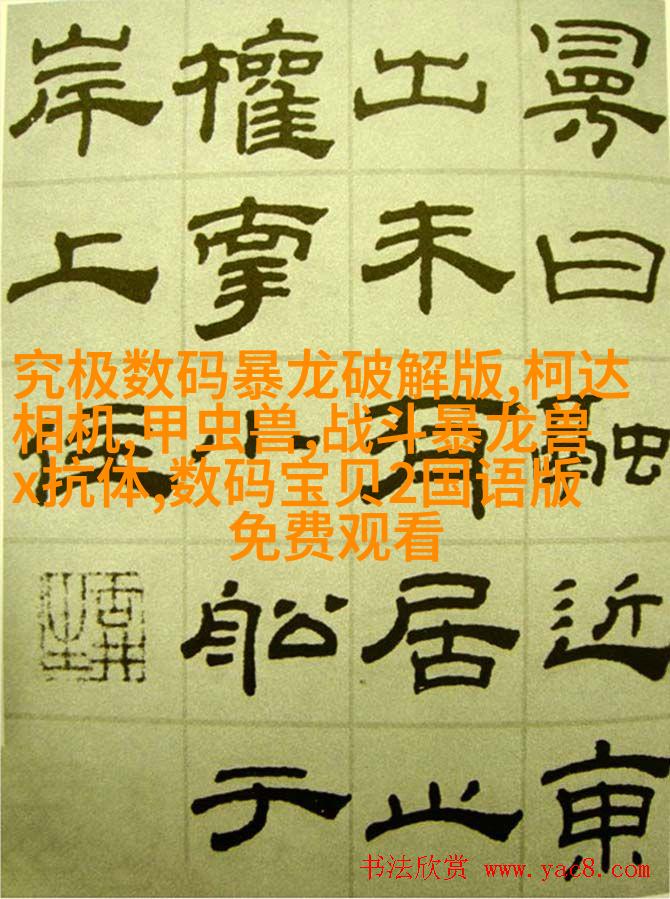 曼曰融近東
出未有居止
權牽小船于
岸上住
究极数码暴龙破解版,柯达
相机,甲虫兽,战斗暴龙兽
x抗体,数码宝贝2国语版
免费观看
书法欣赏 www.yac8.com